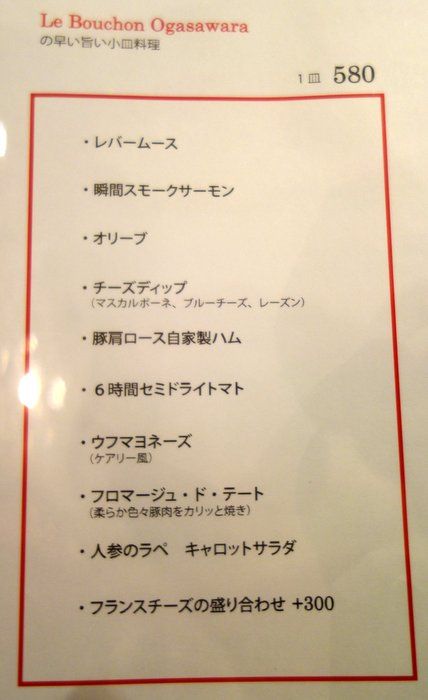 Le Bouchon Ogasawara
の早い旨い小皿料理
1皿 580
・レバームース
・瞬間スモークサーモン
・オリーブ
・チーズディップ
（マスカルポーネ、ブルーチーズ、レーズン）
・豚肩ロース自家製ハム
・６時間セミドライトマト
・ウフマヨネーズ
（ケアリー風）
・フロマージュ・ド・テート
（柔らか色々豚肉をカリッと焼き）
・人参のラペ　キャロットサラダ
・フランスチーズの盛り合わせ +300